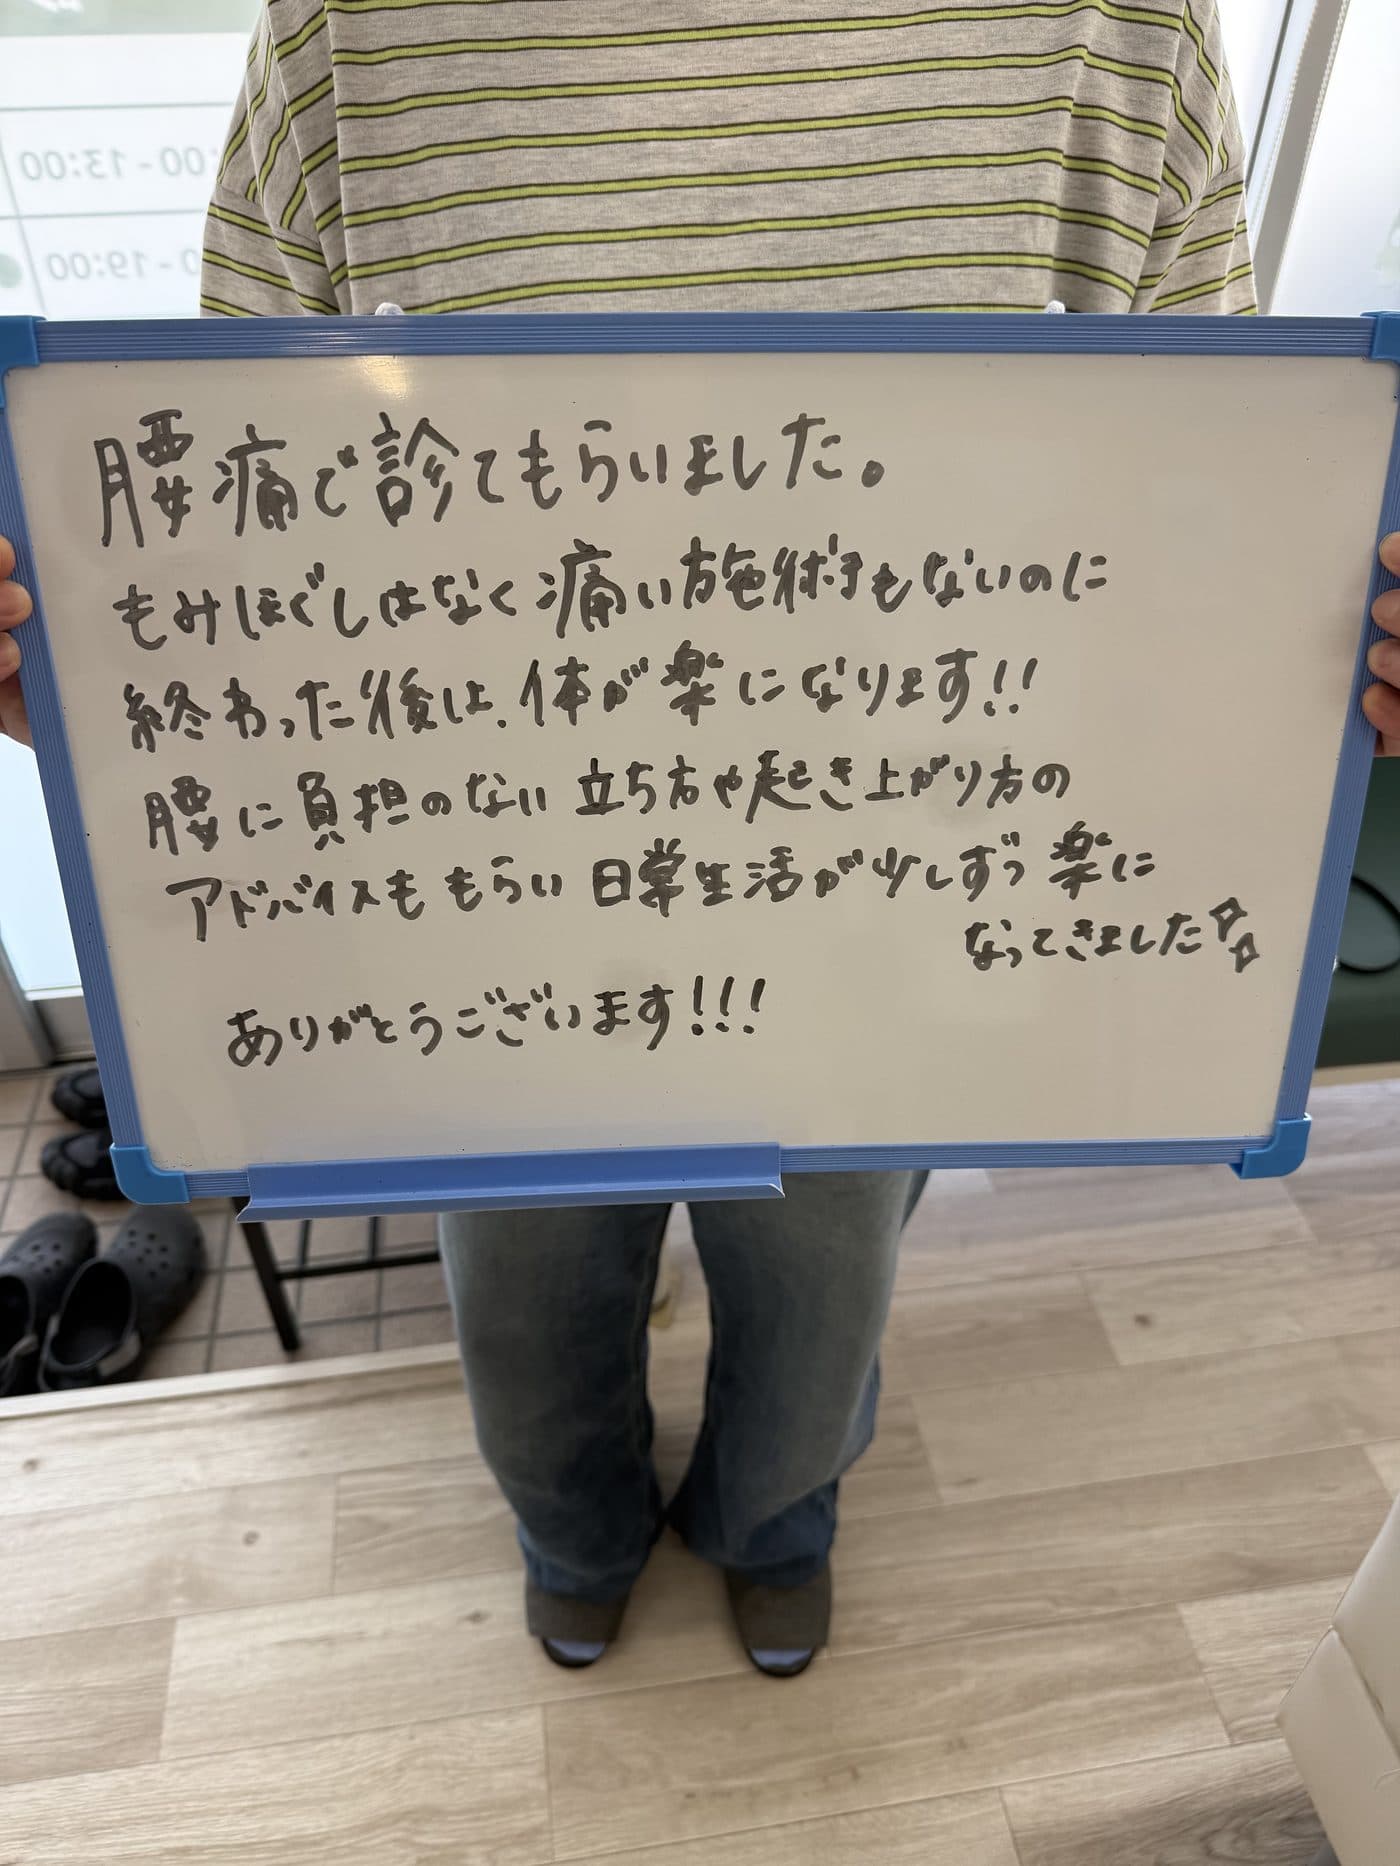 腰痛で診てもらいました。
もみほぐしはなく痛い施術もないのに
終わった後は、体が楽になります!!
腰に負担のない立ち方や起き上がり方の
アドバイスももらい日常生活が少しずつ楽に
なってきました
ありがとうございます!!!
:00 - 13:00
0 - 19:00